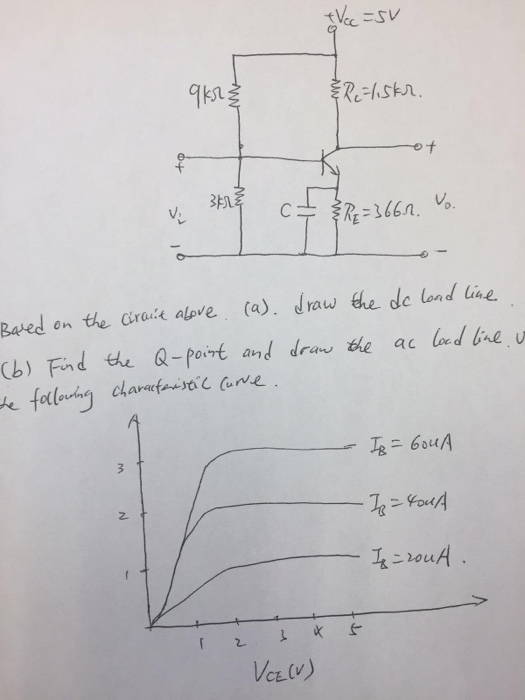 +Vcc = 5V
9kΩ
RC=1.5kΩ.
+
+
Vi
3kΩ
C
RE=366Ω.
Vo.
-
-
Based on the circuit above. (a). draw the dc load line.
(b) Find the Q-point and draw the ac load line.
following characteristic curve.
A
3
2
1
IB = 60uA
IB = 40uA
IB = 20uA.
1 2 3 4 5
VCE(V)